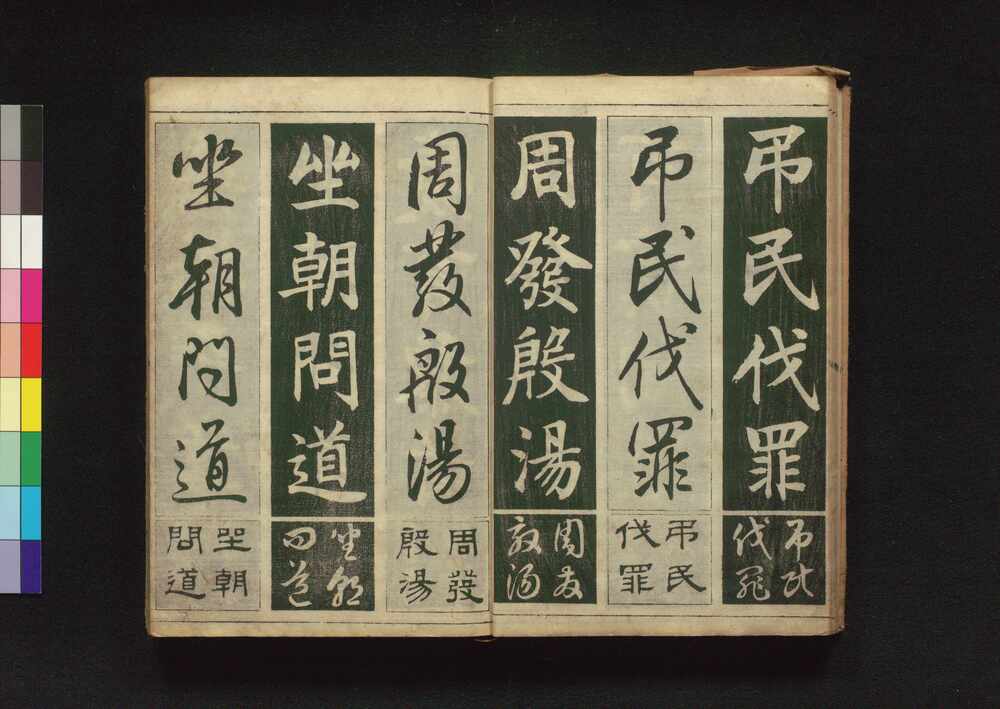 弔民伐罪
弔民
伐罪
弔民伐罪
弔民
伐罪
周發殷湯
周發
殷湯
周發殷湯
周發
殷湯
坐朝問道
坐朝
問道
坐朝問道
坐朝
問道